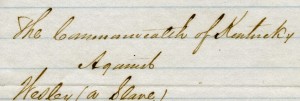 The Commonwealth of Kentucky
Against
Wesley (a Slave)